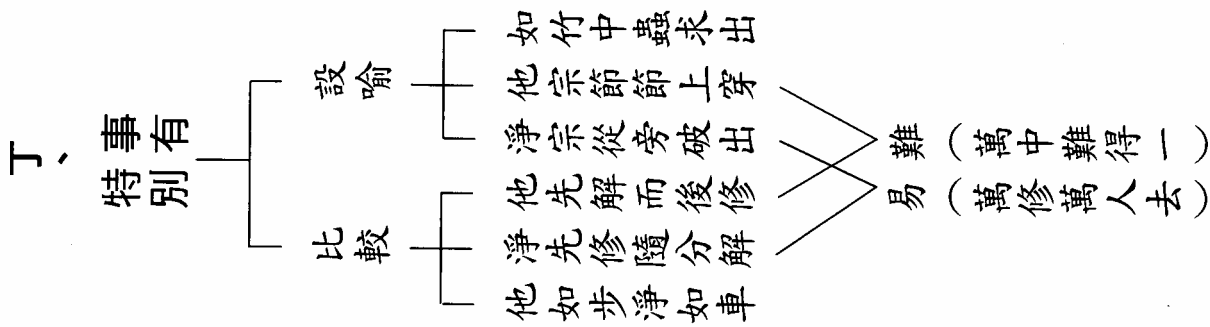 丁、
事有
特別
設喻
如竹中蟲求出
他宗節節上穿
淨宗從旁破出
比較
他先解而後修
淨先修隨分解
他如步淨如車
難（萬中難得一）
易（萬修萬人去）